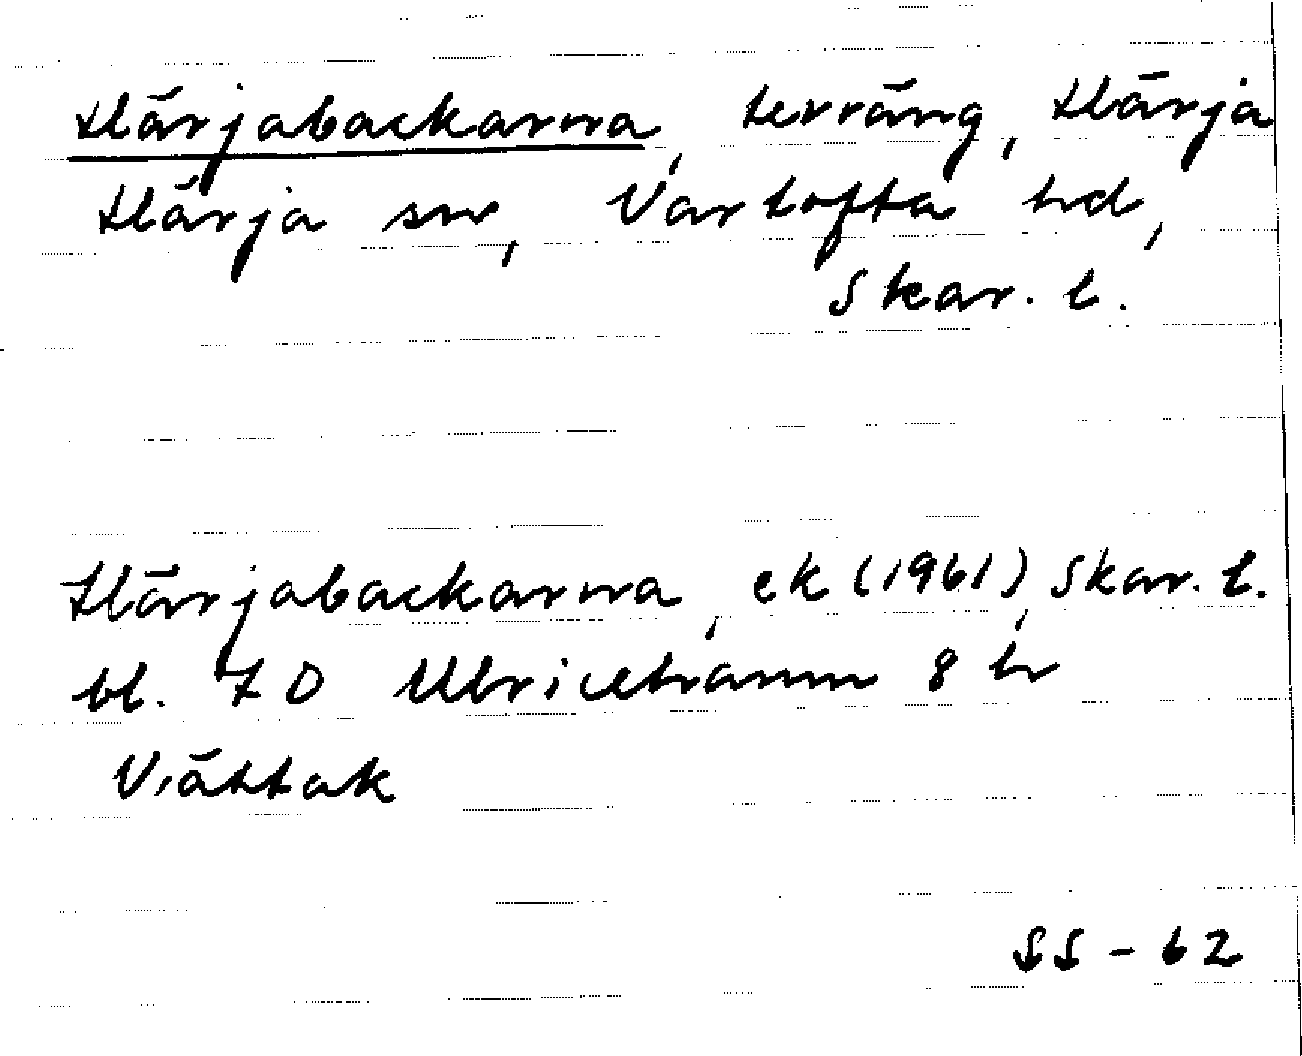 Härjabackarna, terräng, Härja
Härja sn, Vartofta hd,
Skar. l.
Härjabackarna, ek (1961), Skar. l.
bl. 7 D Ulricehamn 8 h
Vättak
SS - 62